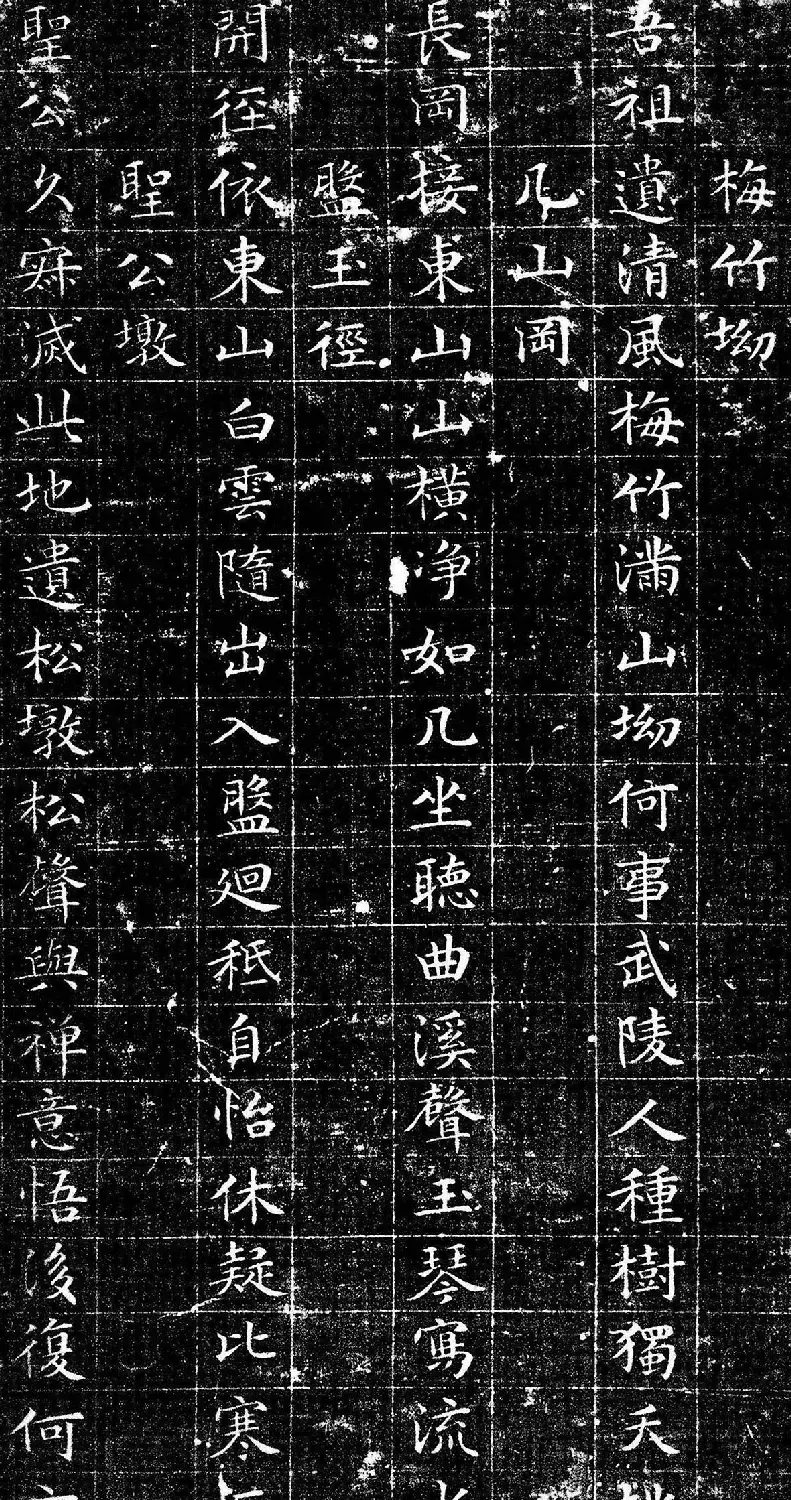 梅竹坳
吾祖遺清風梅竹滿山坳何事武陵人種樹獨夭
几山岡
長岡接東山山橫净如几坐聽曲溪聲玉琴寫流
盤玉徑
開徑依東山白雲隨出入盤廻秪自怡休疑比寒
聖公墩
聖公久寂滅此地遺松墩松聲與禅意悟後復何